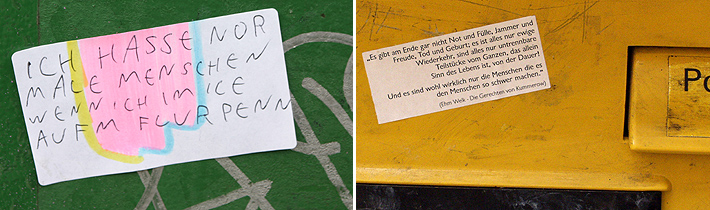 ICH HASSE NOR
MALE MENSCHEN
WENN ICH IM ICE
AUFM FLUR PENN
„Es gibt am Ende gar nicht Not und Fülle, Jammer und
Freude, Tod und Geburt; es ist alles nur ewige
Wiederkehr, sind alles nur untrennbare
Teilstücke vom Ganzen, das allein
Sinn des Lebens ist, von der Dauer!
Und es sind wohl wirklich nur die Menschen die es
den Menschen so schwer machen.“
(Ehm Welk - Die Gerechten von Kummerow)
Po